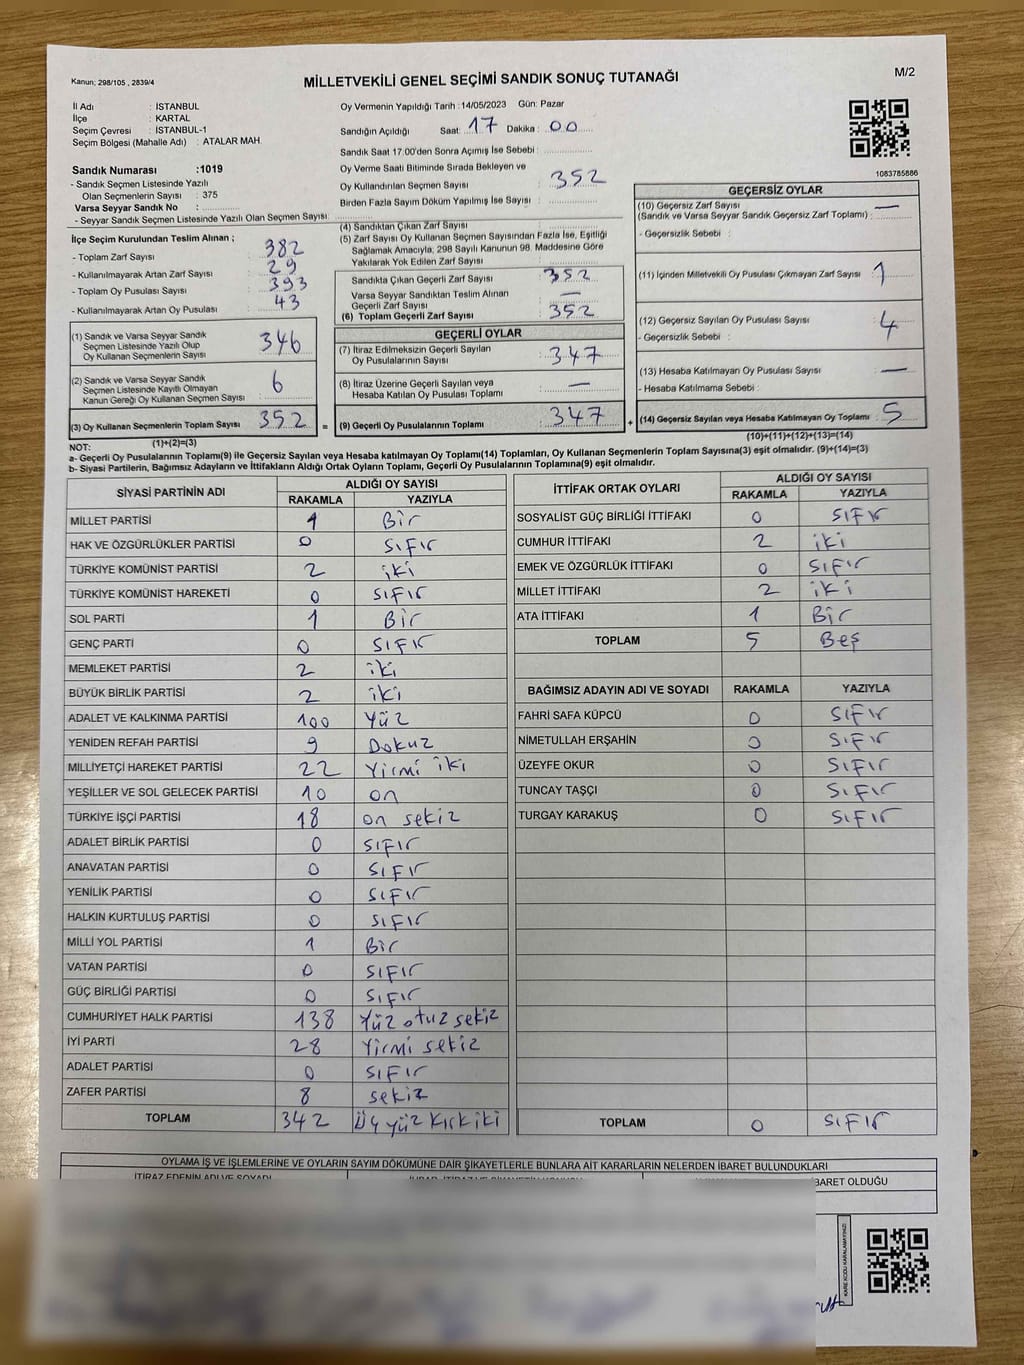 Kanun; 298/105 , 2839/4
MİLLETVEKİLİ GENEL SEÇİMİ SANDIK SONUÇ TUTANAĞI
M/2
İl Adı : İSTANBUL
İlçe : KARTAL
Seçim Çevresi : İSTANBUL-1
Seçim Bölgesi (Mahalle Adı) : ATALAR MAH.
Oy Vermenin Yapıldığı Tarih :14/05/2023 Gün: Pazar
Sandığın Açıldığı Saat: 17 Dakika : 00
Sandık Saat 17:00'den Sonra Açımış İse Sebebi :
Oy Verme Saati Bitiminde Sırada Bekleyen ve
Oy Kullandırılan Seçmen Sayısı : 352
Birden Fazla Sayım Döküm Yapılmış İse Sayısı :
1083785886
Sandık Numarası :1019
- Sandık Seçmen Listesinde Yazılı
Olan Seçmenlerin Sayısı : 375
Varsa Seyyar Sandık No :
- Seyyar Sandık Seçmen Listesinde Yazılı Olan Seçmen Sayısı:
İlçe Seçim Kurulundan Teslim Alınan ;
- Toplam Zarf Sayısı : 382
- Kullanılmayarak Artan Zarf Sayısı : 29
- Toplam Oy Pusulası Sayısı : 393
- Kullanılmayarak Artan Oy Pusulası : 43
(1) Sandık ve Varsa Seyyar Sandık
Seçmen Listesinde Yazılı Olup
Oy Kullanan Seçmenlerin Sayısı : 346
(2) Sandık ve Varsa Seyyar Sandık
Seçmen Listesinde Kayıtlı Olmayan
Kanun Gereği Oy Kullanan Seçmen Sayısı : 6
(3) Oy Kullanan Seçmenlerin Toplam Sayısı : 352
(1)+(2)=(3)
(4) Sandıktan Çıkan Zarf Sayısı :
(5) Zarf Sayısı Oy Kullanan Seçmen Sayısından Fazla İse, Eşitliği
Sağlamak Amacıyla; 298 Sayılı Kanunun 98. Maddesine Göre
Yakılarak Yok Edilen Zarf Sayısı :
Sandıkta Çıkan Geçerli Zarf Sayısı : 352
Varsa Seyyar Sandıktan Teslim Alınan
Geçerli Zarf Sayısı : —
(6) Toplam Geçerli Zarf Sayısı : 352
GEÇERLİ OYLAR
(7) İtiraz Edilmeksizin Geçerli Sayılan
Oy Pusulalarının Sayısı : 347
(8) İtiraz Üzerine Geçerli Sayılan veya
Hesaba Katılan Oy Pusulası Toplamı : —
= (9) Geçerli Oy Pusulalarının Toplamı : 347
GEÇERSİZ OYLAR
(10) Geçersiz Zarf Sayısı —
(Sandık ve Varsa Seyyar Sandık Geçersiz Zarf Toplamı) :
- Geçersizlik Sebebi :
(11) İçinden Milletvekili Oy Pusulası Çıkmayan Zarf Sayısı : 1
(12) Geçersiz Sayılan Oy Pusulası Sayısı : 4
- Geçersizlik Sebebi :
(13) Hesaba Katılmayan Oy Pusulası Sayısı : —
- Hesaba Katılmama Sebebi :
+ (14) Geçersiz Sayılan veya Hesaba Katılmayan Oy Toplamı : 5
(10)+(11)+(12)+(13)=(14)
NOT:
a- Geçerli Oy Pusulalarının Toplamı(9) ile Geçersiz Sayılan veya Hesaba katılmayan Oy Toplamı(14) Toplamları, Oy Kullanan Seçmenlerin Toplam Sayısına(3) eşit olmalıdır. (9)+(14)=(3)
b- Siyasi Partilerin, Bağımsız Adayların ve İttifakların Aldığı Ortak Oyların Toplamı, Geçerli Oy Pusulalarının Toplamına(9) eşit olmalıdır.
SİYASİ PARTİNİN ADI ALDIĞI OY SAYISI
RAKAMLA YAZIYLA
MİLLET PARTİSİ 1 Bir
HAK VE ÖZGÜRLÜKLER PARTİSİ 0 SıFır
TÜRKİYE KOMÜNİST PARTİSİ 2 iki
TÜRKİYE KOMÜNİST HAREKETİ 0 SıFır
SOL PARTİ 1 Bir
GENÇ PARTİ 0 SıFır
MEMLEKET PARTİSİ 2 iki
BÜYÜK BİRLİK PARTİSİ 2 iki
ADALET VE KALKINMA PARTİSİ 100 Yüz
YENİDEN REFAH PARTİSİ 9 Dokuz
MİLLİYETÇİ HAREKET PARTİSİ 22 Yirmi iki
YEŞİLLER VE SOL GELECEK PARTİSİ 10 on
TÜRKİYE İŞÇİ PARTİSİ 18 on sekiz
ADALET BİRLİK PARTİSİ 0 SıFır
ANAVATAN PARTİSİ 0 SıFır
YENİLİK PARTİSİ 0 SıFır
HALKIN KURTULUŞ PARTİSİ 0 SıFır
MİLLİ YOL PARTİSİ 1 Bir
VATAN PARTİSİ 0 SıFır
GÜÇ BİRLİĞİ PARTİSİ 0 SıFır
CUMHURİYET HALK PARTİSİ 138 Yüz otuz sekiz
İYİ PARTİ 28 Yirmi sekiz
ADALET PARTİSİ 0 SıFır
ZAFER PARTİSİ 8 sekiz
TOPLAM 342 Üç yüz Kırk iki
İTTİFAK ORTAK OYLARI ALDIĞI OY SAYISI
RAKAMLA YAZIYLA
SOSYALİST GÜÇ BİRLİĞİ İTTİFAKI 0 SıFır
CUMHUR İTTİFAKI 2 iki
EMEK VE ÖZGÜRLÜK İTTİFAKI 0 SıFır
MİLLET İTTİFAKI 2 iki
ATA İTTİFAKI 1 Bir
TOPLAM 5 Beş
BAĞIMSIZ ADAYIN ADI VE SOYADI RAKAMLA YAZIYLA
FAHRİ SAFA KÜPCÜ 0 SıFır
NİMETULLAH ERŞAHİN 0 SıFır
ÜZEYFE OKUR 0 SıFır
TUNCAY TAŞÇI 0 SıFır
TURGAY KARAKUŞ 0 SıFır
TOPLAM 0 SıFır
OYLAMA İŞ VE İŞLEMLERİNE VE OYLARIN SAYIM DÖKÜMÜNE DAİR ŞİKAYETLERLE BUNLARA AİT KARARLARIN NELERDEN İBARET BULUNDUKLARI
İTİRAZ EDENİN ADI VE SOYADI
İBARET OLDUĞU
KARE KODU KARALAMAYINIZ!